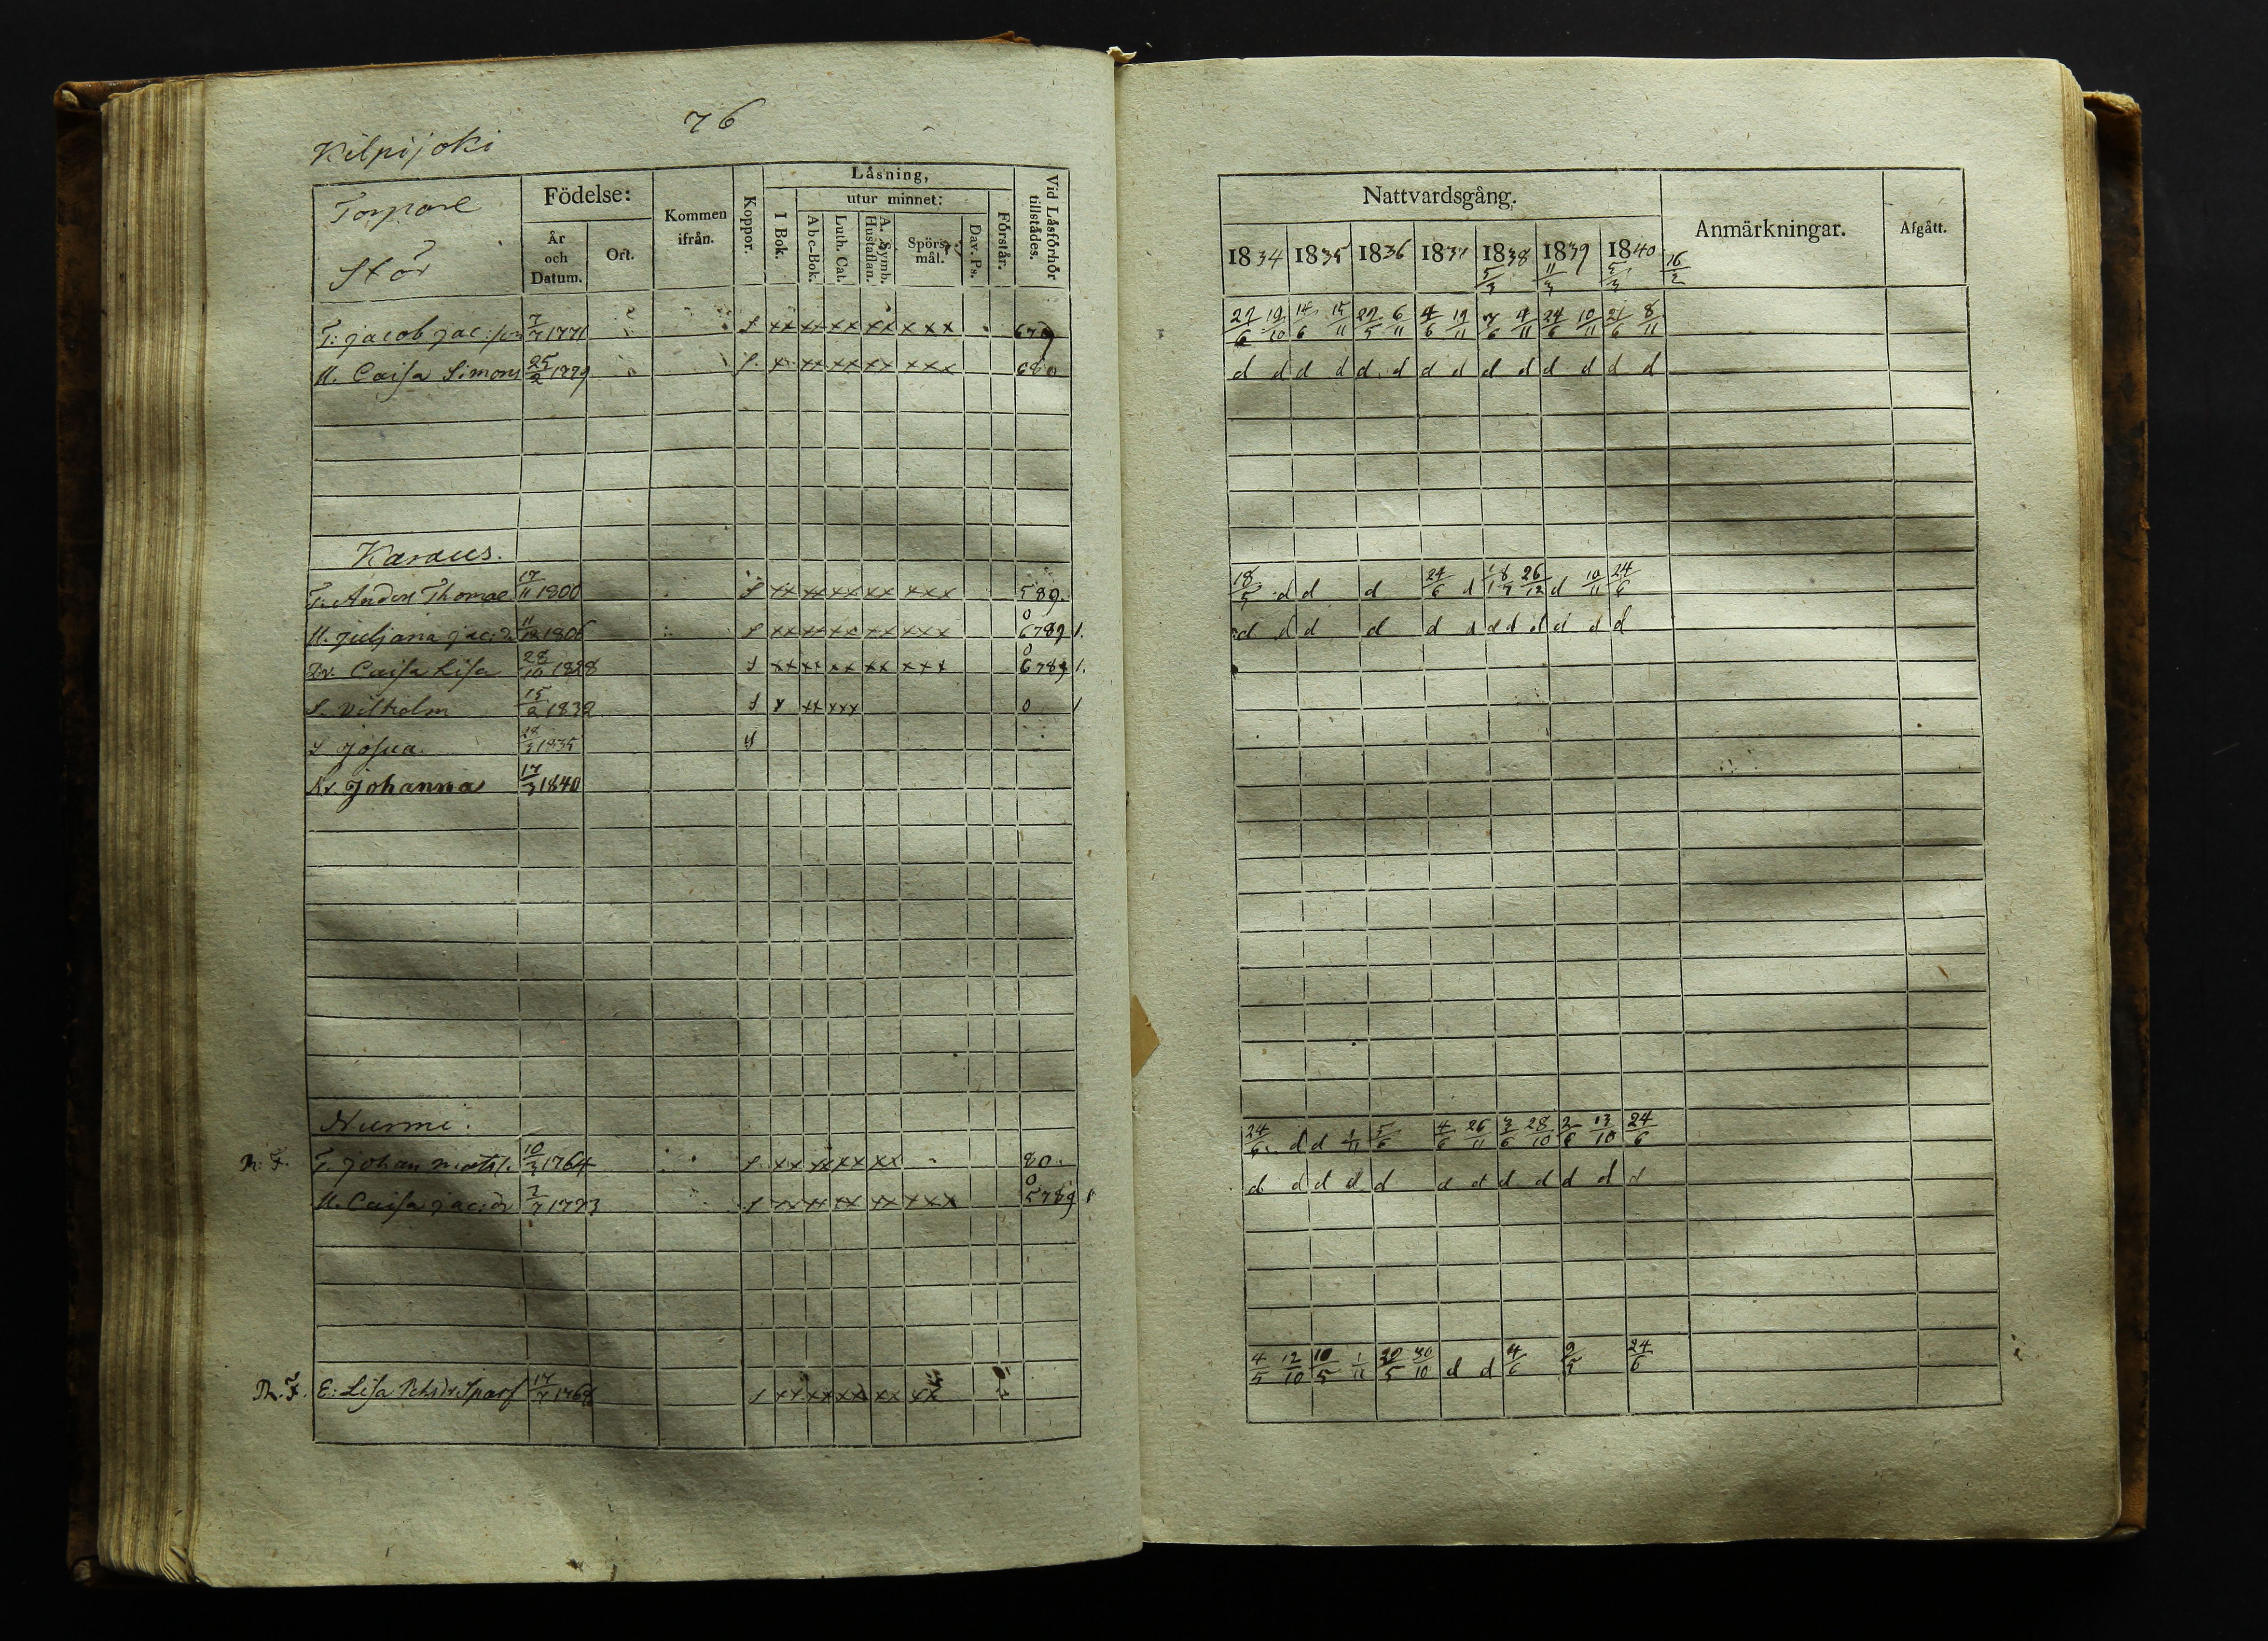 76
Kilpijoki
Torpare
Stor
Födelse:
År och Datum.
Ort.
Kommen ifrån.
Koppor.
Läsning,
I Bok.
utur minnet:
Abc-Bok.
Luth. Cat.
A. Symb. Hustaflan.
Spörsmål.
Dav. Ps.
Förstår.
Vid Läsförhör tillstädes.
T: Jacob Jac: 7/7 1771 S xx xx xx xx xxx 679
H. Caisa Simons 25/2 1779 S. x xx xx xx xxx 680
Karaus.
T. Anders Thomae 17/11 1800 S xx xx xx xx xxx 589.
H. Juljana Jac: d. 11/12 1806 S xx xx xx xx xxx 0 6789 1.
Dr. Caisa Lisa 28/10 1828 S xx xx xx xx xxx 0 6789 1.
S. Vilhelm 15/2 1832 S x xx xxx 0 1
S Josua. 28/3 1835 S
Dr. Johanna 17/3 1840
Nurmi.
T. Johan Mats f. 10/3 1764 S. xx xx xx xx 80.
H. Caisa Jac: dr 7/7 1773 S xx xx xx xx xxx 0 5789 1
E: Lisa Sparf 17/7 1768 S xx xx xx xx xx
Nattvardsgång.
Anmärkningar.
Afgått.
1834 1835 1836 1837 1838 1839 1840
5/3 11/3 5/3 16/2
27/6 19/10 14/6 15/11 29/5 6/11 4/6 19/11 7/6 4/11 24/6 10/11 21/6 8/11
d d d d d d d d d d d d d d
18/5 d d d 24/6 d 18/12 26/12 d 10/11 24/6
d d d d d d d d d d d d
24/6 d d 1/11 5/6 4/6 26/11 3/6 28/10 2/6 13/10 24/6
d d d d d d d d d d d d
4/5 12/10 10/5 1/11 20/5 30/10 d d 4/6 9/5 24/6